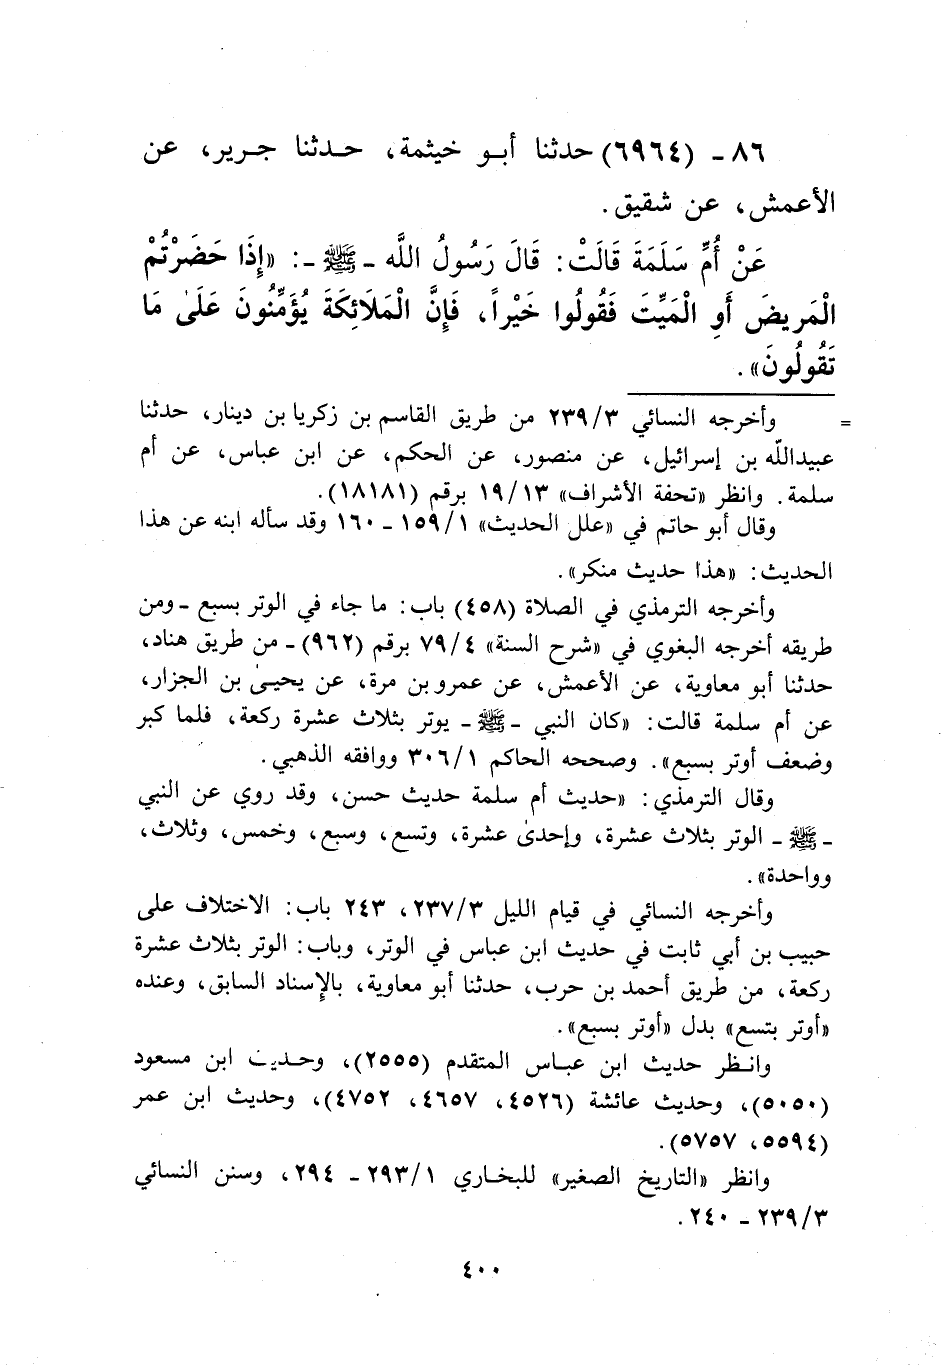 ٨٦ - (٦٩٦٤) حدثنا أبو خيثمة، حدثنا جرير، عن
الأعمش، عن شقيق.
عَنْ أُمِّ سَلَمَةَ قَالَتْ: قَالَ رَسُولُ اللَّه - ﷺ -: «إِذَا حَضَرْتُمُ
الْمَرِيضَ أَوِ الْمَيِّتَ فَقُولُوا خَيْراً، فَإِنَّ الْمَلَائِكَةَ يُؤَمِّنُونَ عَلَىٰ مَا
تَقُولُونَ».
= وأخرجه النسائي ٢٣٩/٣ من طريق القاسم بن زكريا بن دينار، حدثنا
عبيدالله بن إسرائيل، عن منصور، عن الحكم، عن ابن عباس، عن أم
سلمة. وانظر «تحفة الأشراف» ١٩/١٣ برقم (١٨١٨١).
وقال أبو حاتم في «علل الحديث» ١٥٩/١ - ١٦٠ وقد سأله ابنه عن هذا
الحديث: «هذا حديث منكر».
وأخرجه الترمذي في الصلاة (٤٥٨) باب: ما جاء في الوتر بسبع - ومن
طريقه أخرجه البغوي في «شرح السنة» ٧٩/٤ برقم (٩٦٢) - من طريق هناد،
حدثنا أبو معاوية، عن الأعمش، عن عمرو بن مرة، عن يحيىٰ بن الجزار،
عن أم سلمة قالت: «كان النبي - ﷺ - يوتر بثلاث عشرة ركعة، فلما كبر
وضعف أوتر بسبع». وصححه الحاكم ٣٠٦/١ ووافقه الذهبي.
وقال الترمذي: «حديث أم سلمة حديث حسن، وقد روي عن النبي
- ﷺ - الوتر بثلاث عشرة، وإحدىٰ عشرة، وتسع، وسبع، وخمس، وثلاث،
وواحدة».
وأخرجه النسائي في قيام الليل ٢٣٧/٣، ٢٤٣ باب: الاختلاف على
حبيب بن أبي ثابت في حديث ابن عباس في الوتر، وباب: الوتر بثلاث عشرة
ركعة، من طريق أحمد بن حرب، حدثنا أبو معاوية، بالإسناد السابق، وعنده
«أوتر بتسع» بدل «أوتر بسبع».
وانظر حديث ابن عباس المتقدم (٢٥٥٥)، وحديث ابن مسعود
(٥٠٥٠)، وحديث عائشة (٤٥٢٦، ٤٦٥٧، ٤٧٥٢)، وحديث ابن عمر
(٥٥٩٤، ٥٧٥٧).
وانظر «التاريخ الصغير» للبخاري ٢٩٣/١ - ٢٩٤، وسنن النسائي
٢٣٩/٣ - ٢٤٠.
٤٠٠